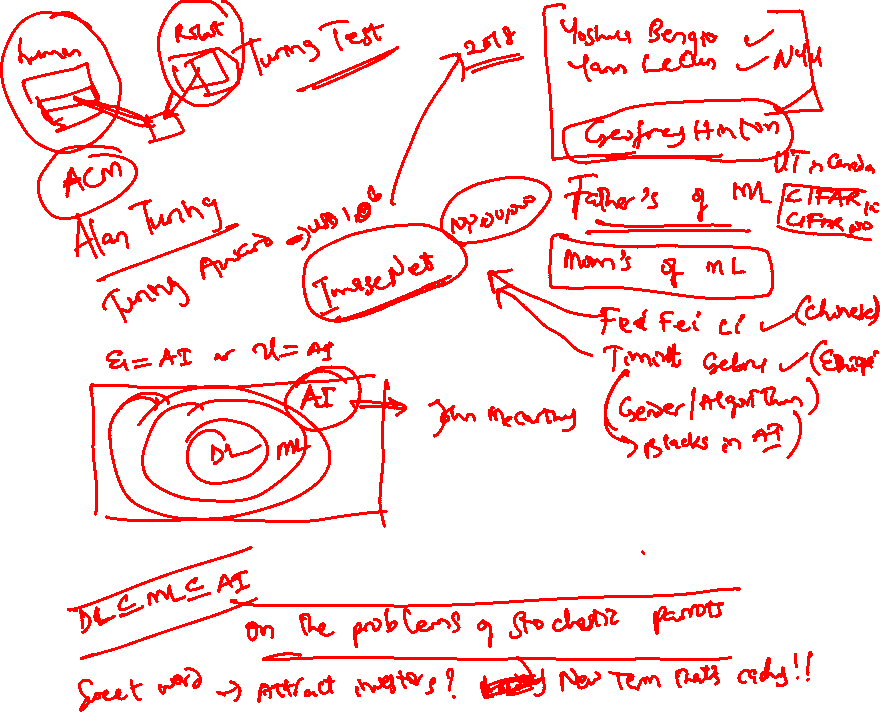 human
Robot
Turing Test
ACM
Alan Turing
Turing Award → USD 1.0
2018
Yoshua Bengio ✓
Yann LeCun ✓ NYU
Geofrey Hinton
UT in Canada
CIFAR
CIFAR
Father's of ML
ImageNet
Mom's of ML
Fei Fei Li ✓ (Chinese)
Timnit Gebru ✓
(Gender/Algorithm)
→ Blacks in AI)
= AI or U = AI
AI → John McCarthy
DL ML
DL ⊆ ML ⊆ AI
On the problems of stochastic parrots
Sweet word → Attract investors? New Term that's catchy!!